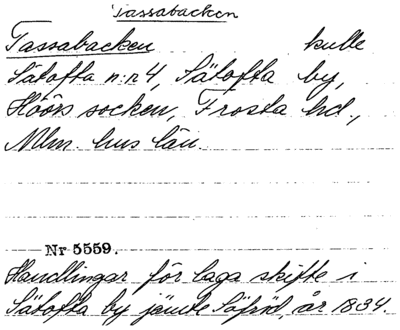 Tassabacken
Tassabacken kulle
Sätofta n:r 4, Sätofta by,
Höörs socken, Frosta hd.,
Mlm. hus län.
Nr 5559.
Handlingar för laga skifte i
Sätofta by jämte år 1834.